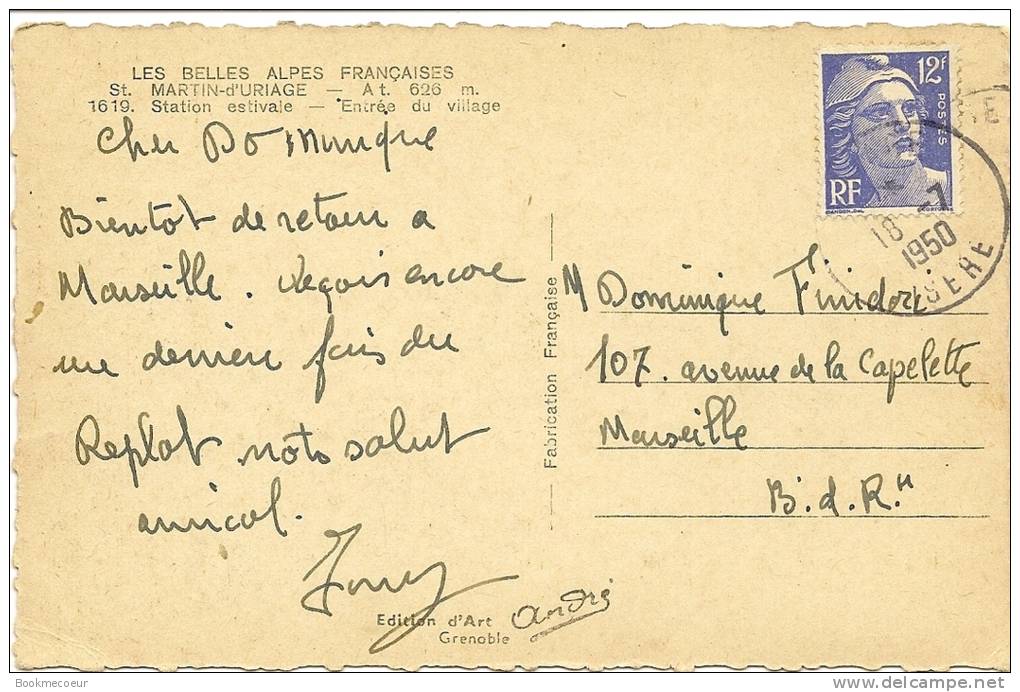 LES BELLES ALPES FRANÇAISES
St. MARTIN-d'URIAGE — At. 626 m.
1619. Station estivale — Entrée du village
Cher Dominique
Bientot de retour a
Marseille. Reçois encore
une derniere fois du
Replat nots salut
amical.
Edition d'Art André
Grenoble
Fabrication Française
12f
POSTES
RF
18 -7
1950
ISERE
M Dominique Finidori
107. avenue de la Capelette
Marseille
B.d.R.
Bookmecoeur
delcampe.net